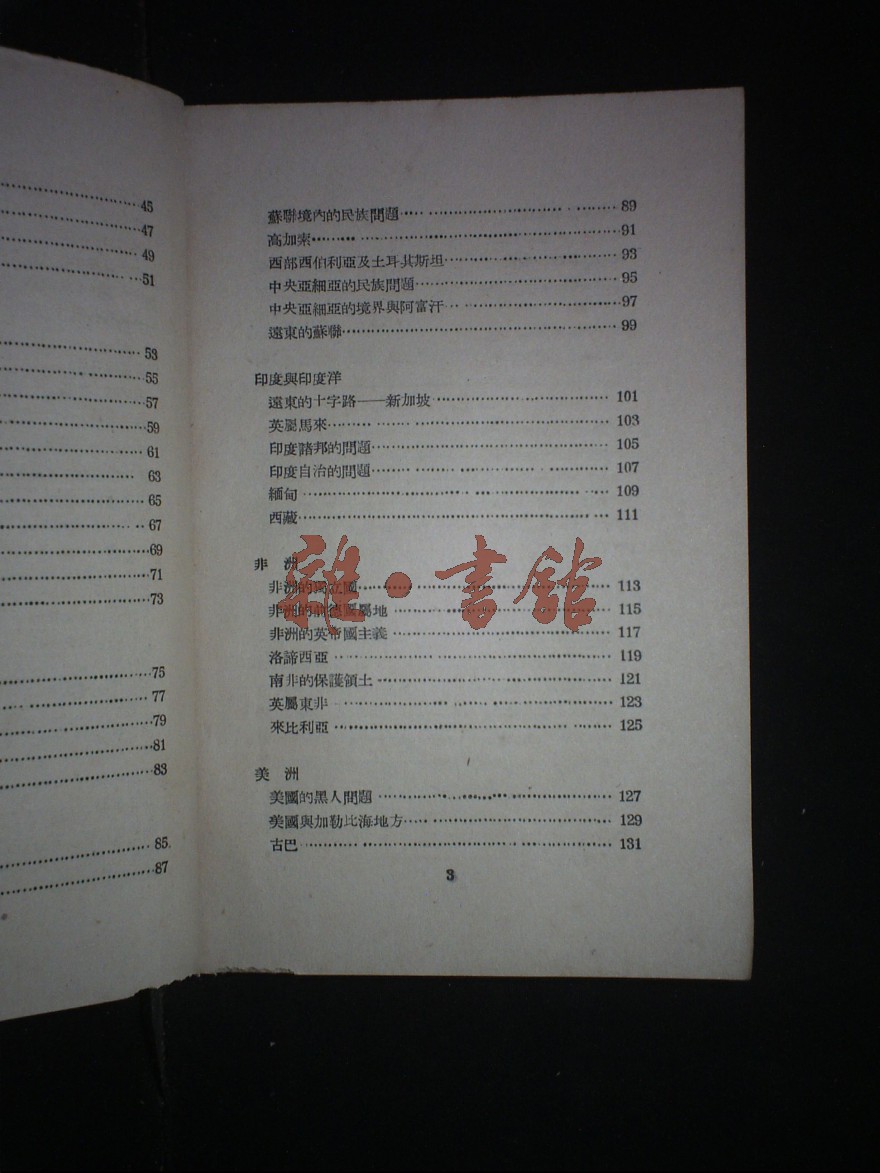 45
47
49
51
53
55
57
59
61
63
65
67
69
71
73
75
77
79
81
83
85
87
蘇聯境內的民族問題 89
高加索 91
西部西伯利亞及土耳其斯坦 93
中央亞細亞的民族問題 95
中央亞細亞的境界與阿富汗 97
遠東的蘇聯 99
印度與印度洋
遠東的十字路——新加坡 101
英屬馬來 103
印度諸邦的問題 105
印度自治的問題 107
緬甸 109
西藏 111
雜·書館
非洲
非洲的獨立國 113
非洲的前德國屬地 115
非洲的英帝國主義 117
洛諦西亞 119
南非的保護領土 121
英屬東非 123
來比利亞 125
美洲
美國的黑人問題 127
美國與加勒比海地方 129
古巴 131
3